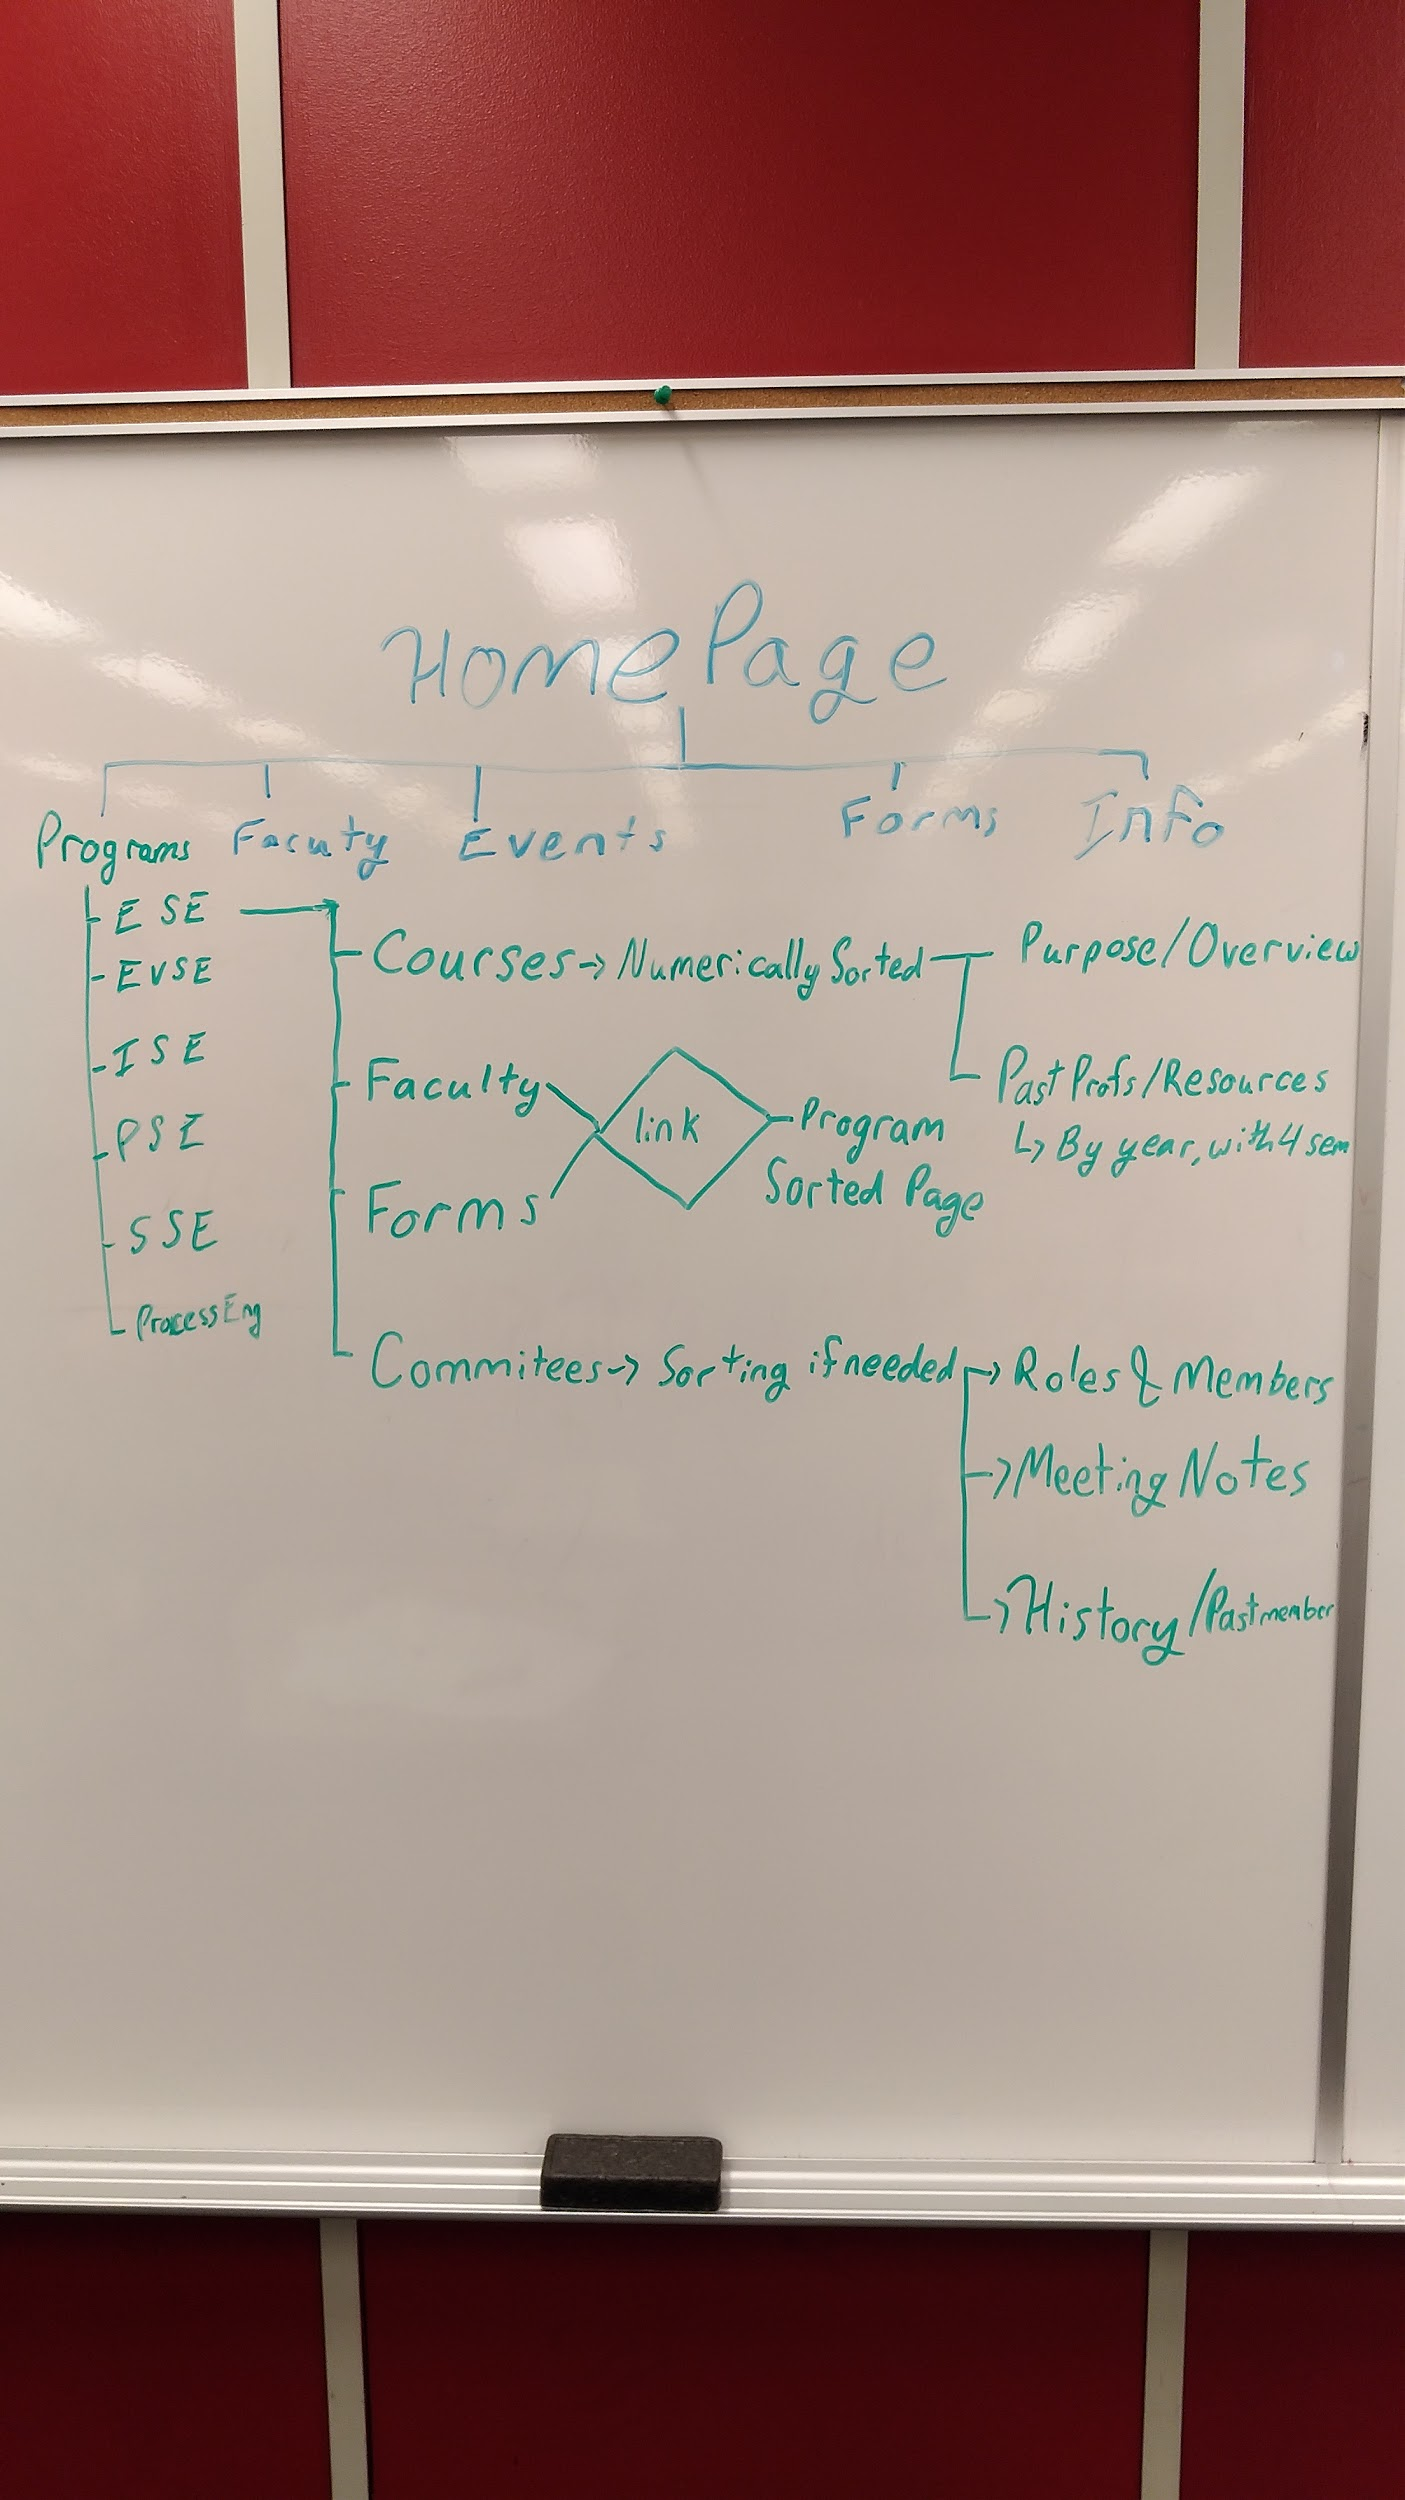 HomePage
Programs Facuty Events Forms Info
ESE
EVSE
ISE
PSE
SSE
ProcessEng
Courses -> Numerically Sorted Purpose/Overview
Past Profs/Resources
↳ By year, with 4 sem
Faculty
Forms
link
Program
Sorted Page
Commitees -> Sorting if needed -> Roles & Members
-> Meeting Notes
-> History/Past member